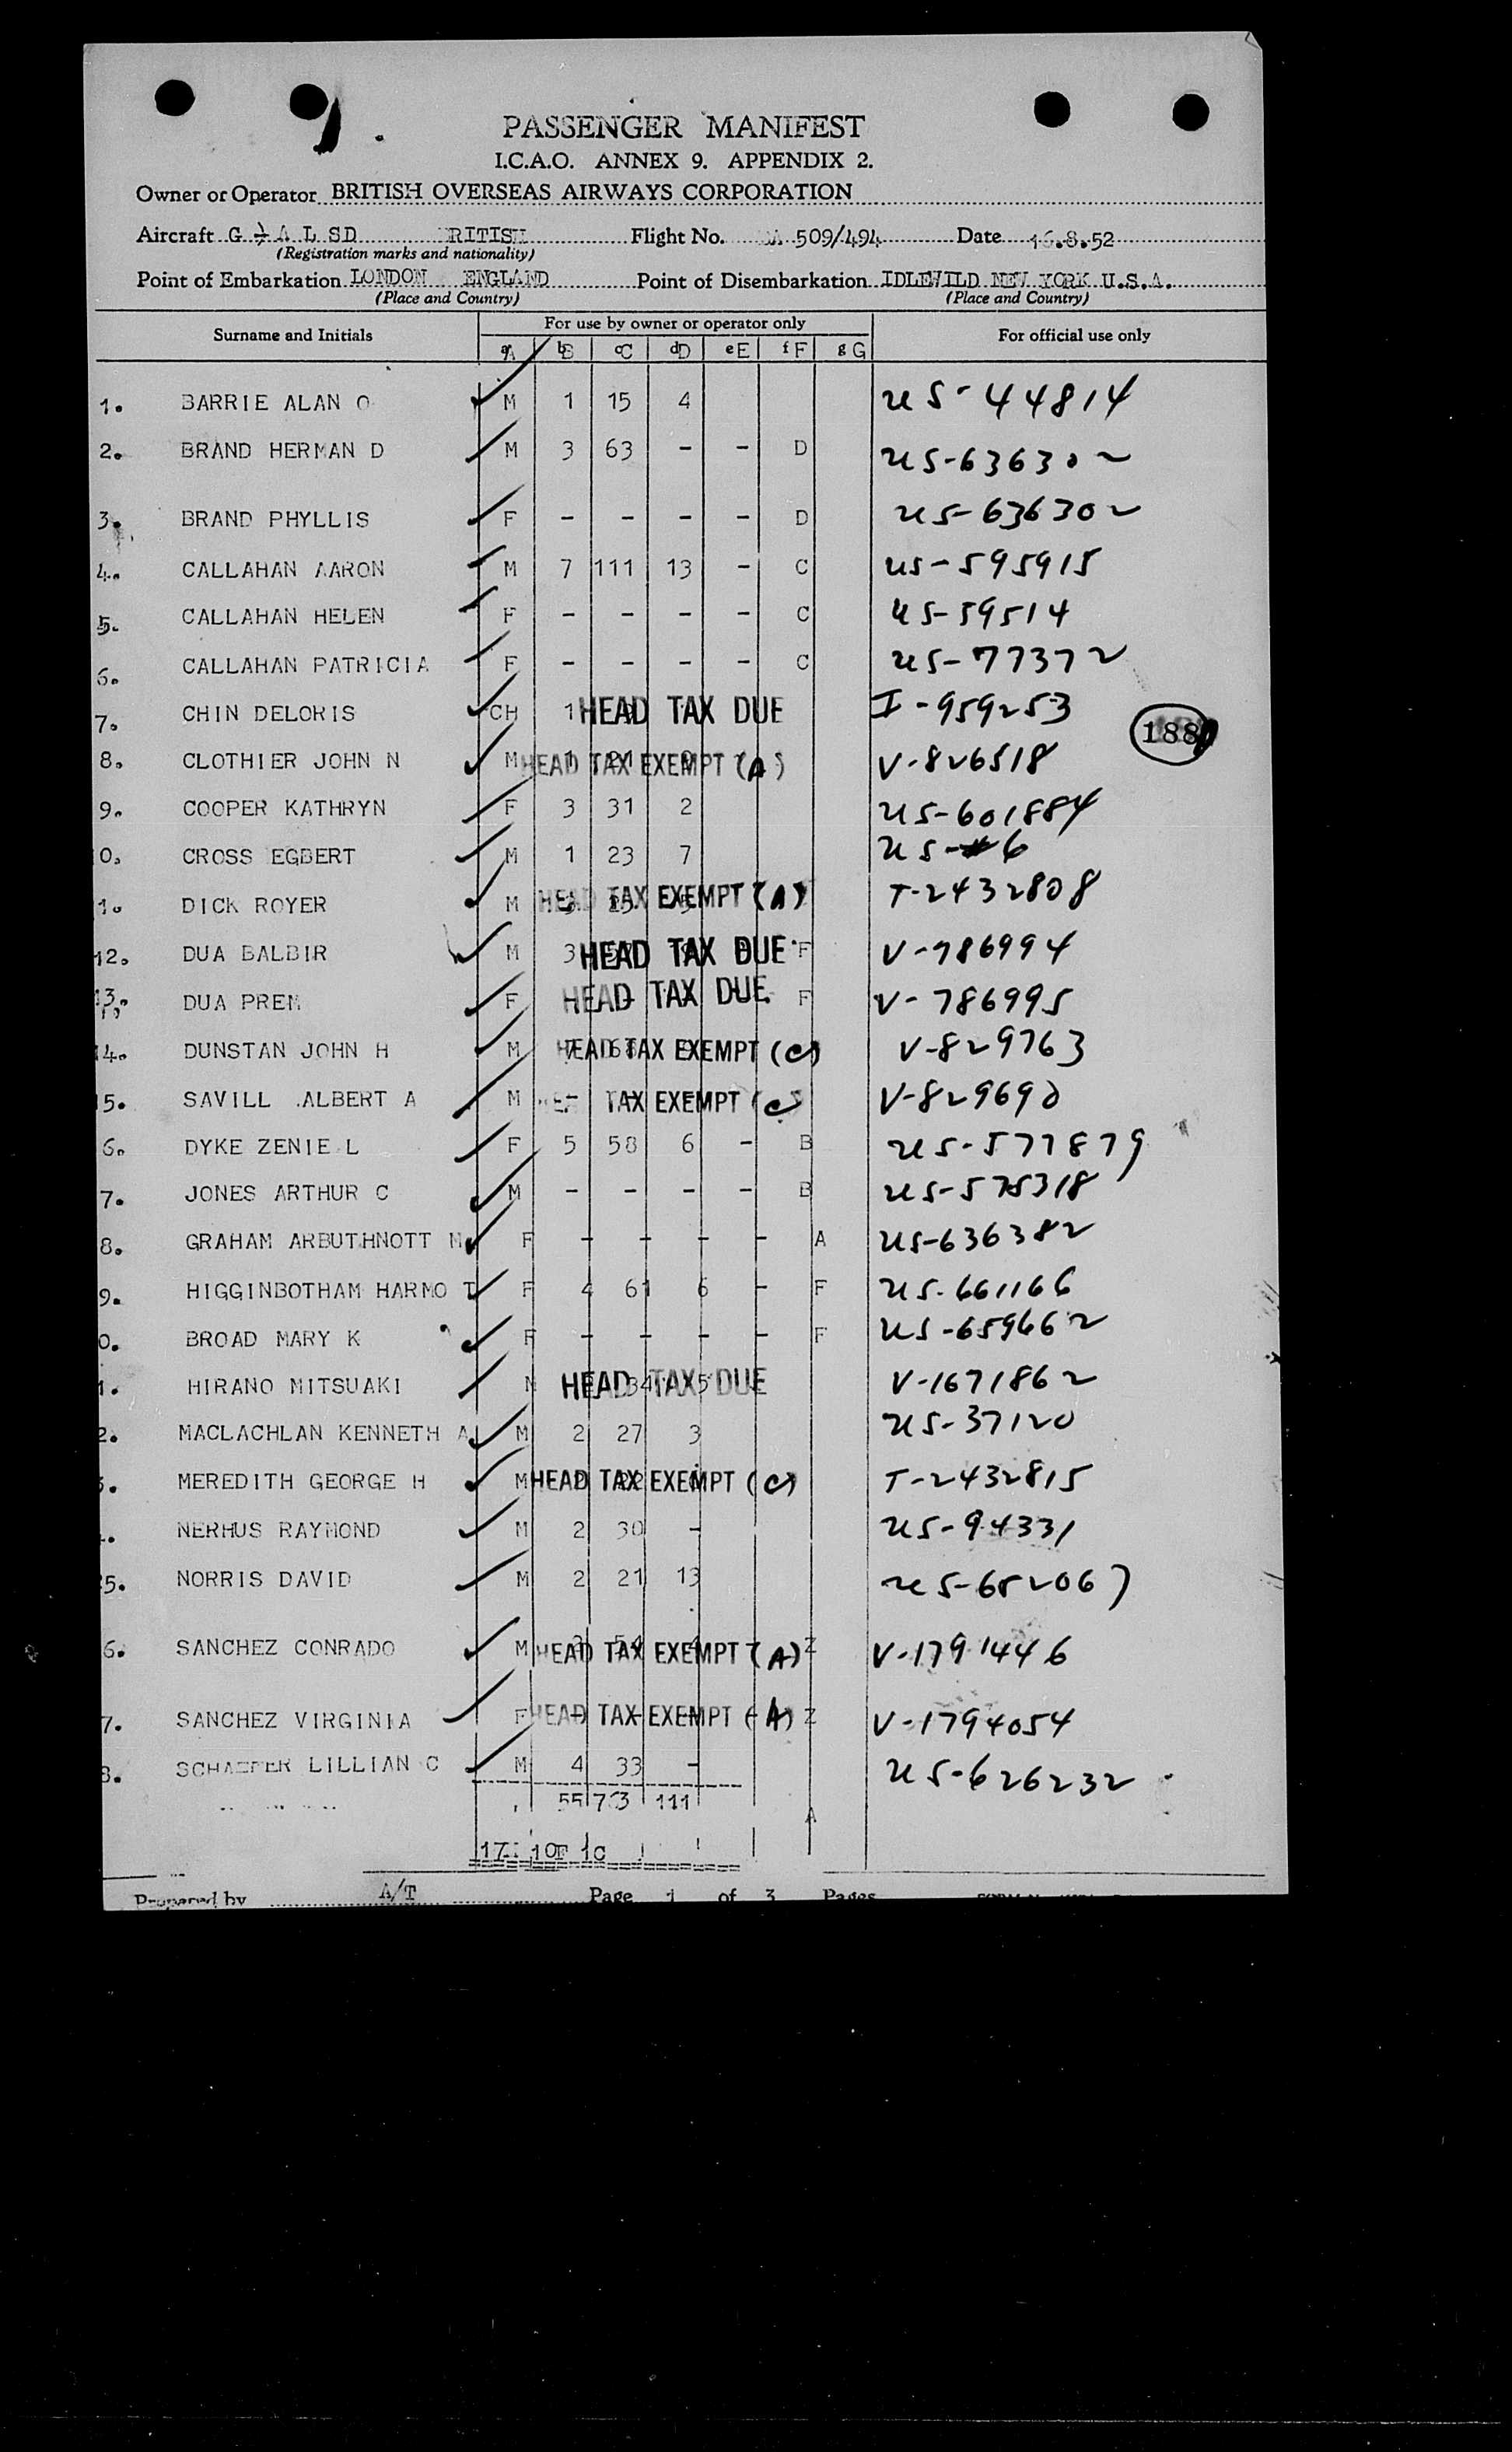 PASSENGER MANIFEST
I.C.A.O. ANNEX 9. APPENDIX 2.
Owner or Operator BRITISH OVERSEAS AIRWAYS CORPORATION
Aircraft G A L SD RITISH Flight No. 509/494 Date 16.8.52
(Registration marks and nationality)
Point of Embarkation LONDON ENGLAND Point of Disembarkation IDLEWILD NEW YORK U.S.A.
(Place and Country) (Place and Country)
Surname and Initials For use by owner or operator only For official use only
A bB cC dD eE fF gG
1. BARRIE ALAN O M 1 15 4 US-44814
2. BRAND HERMAN D M 3 63 - - D US-636302
3. BRAND PHYLLIS F - - - - D US-636302
4. CALLAHAN AARON M 7 111 13 - C US-595915
5. CALLAHAN HELEN F - - - - C US-59514
6. CALLAHAN PATRICIA F - - - - C US-77372
7. CHIN DELORIS CH 1 HEAD TAX DUE I-959253
188
8. CLOTHIER JOHN N M HEAD TAX EXEMPT (A) V-826518
9. COOPER KATHRYN F 3 31 2 US-601884
0. CROSS EGBERT M 1 23 7 US-6
1. DICK ROYER M HEAD TAX EXEMPT (A) T-2432808
12. DUA BALBIR M 3 HEAD TAX DUE F V-786994
13. DUA PREM F HEAD TAX DUE F V-786995
14. DUNSTAN JOHN H M HEAD TAX EXEMPT (C) V-829763
5. SAVILL ALBERT A M HEAD TAX EXEMPT (C) V-829690
6. DYKE ZENIE L F 5 58 6 - B US-577879
7. JONES ARTHUR C M - - - - B US-575318
8. GRAHAM ARBUTHNOTT M F - - - - A US-636382
9. HIGGINBOTHAM HARMO T F 4 61 6 - F US-661166
0. BROAD MARY K F - - - - F US-659662
1. HIRANO MITSUAKI M HEAD TAX DUE 34 5 V-1671862
2. MACLACHLAN KENNETH A M 2 27 3 US-37120
3. MEREDITH GEORGE H M HEAD TAX EXEMPT (C) T-2432815
. NERHUS RAYMOND M 2 30 - US-94331
25. NORRIS DAVID M 2 21 13 US-652067
6. SANCHEZ CONRADO M HEAD TAX EXEMPT (A) Z V-1791446
7. SANCHEZ VIRGINIA F HEAD TAX EXEMPT (A) Z V-1794054
8. SCHAEFER LILLIAN C M 4 33 - US-626232
55 111
A
17 10F 1C
Prepared by A/T Page 1 of 3 Pages